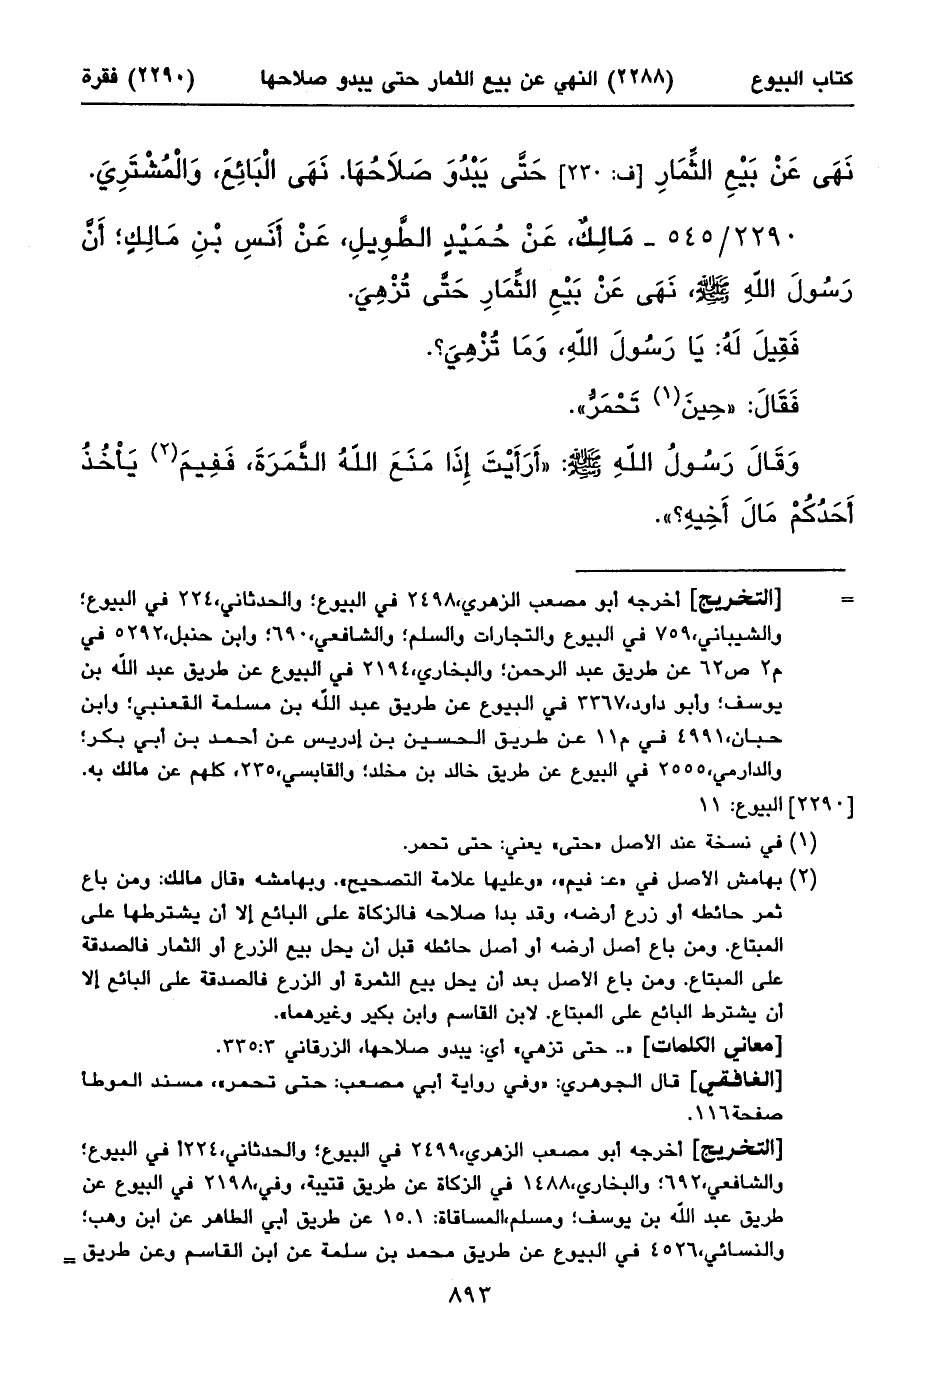 كتاب البيوع (٢٢٨٨) النهي عن بيع الثمار حتى يبدو صلاحها (٢٢٩٠) فقرة
نَهَى عَنْ بَيْعِ الثِّمَارِ [ف: ٢٣٠] حَتَّى يَبْدُوَ صَلَاحُهَا. نَهَى الْبَائِعَ، وَالْمُشْتَرِيَ.
٥٤٥/٢٢٩٠ - مَالِكٌ، عَنْ حُمَيْدٍ الطَّوِيلِ، عَنْ أَنَسِ بْنِ مَالِكٍ؛ أَنَّ
رَسُولَ اللّهِ ﷺ، نَهَى عَنْ بَيْعِ الثِّمَارِ حَتَّى تُزْهِيَ.
فَقِيلَ لَهُ: يَا رَسُولَ اللّهِ، وَمَا تُزْهِيَ؟.
فَقَالَ: «حِينَ(١) تَحْمَرُّ».
وَقَالَ رَسُولُ اللّهِ ﷺ: «أَرَأَيْتَ إِذَا مَنَعَ اللّهُ الثَّمَرَةَ، فَفِيمَ(٢) يَأْخُذُ
أَحَدُكُمْ مَالَ أَخِيهِ؟».
= [التخريج] أخرجه أبو مصعب الزهري،٢٤٩٨ في البيوع؛ والحدثاني،٢٢٤ في البيوع؛
والشيباني،٧٥٩ في البيوع والتجارات والسلم؛ والشافعي،٦٩٠؛ وابن حنبل،٥٢٩٢ في
م٢ ص٦٢ عن طريق عبد الرحمن؛ والبخاري،٢١٩٤ في البيوع عن طريق عبد الله بن
يوسف؛ وأبو داود،٣٣٦٧ في البيوع عن طريق عبد الله بن مسلمة القعنبي؛ وابن
حبان،٤٩٩١ في م١١ عن طريق الحسين بن إدريس عن أحمد بن أبي بكر؛
والدارمي،٢٥٥٥ في البيوع عن طريق خالد بن مخلد؛ والقابسي،٢٣٥، كلهم عن مالك به.
[٢٢٩٠] البيوع: ١١
(١) في نسخة عند الأصل «حتى» يعني: حتى تحمر.
(٢) بهامش الأصل في «عـ: فيم»، «وعليها علامة التصحيح». وبهامشه «قال مالك: ومن باع
ثمر حائطه أو زرع أرضه، وقد بدا صلاحه فالزكاة على البائع إلا أن يشترطها على
المبتاع. ومن باع أصل أرضه أو أصل حائطه قبل أن يحل بيع الزرع أو الثمار فالصدقة
على المبتاع. ومن باع الأصل بعد أن يحل بيع الثمرة أو الزرع فالصدقة على البائع إلا
أن يشترط البائع على المبتاع. لابن القاسم وابن بكير وغيرهما».
[معاني الكلمات] «.. حتى تزهي» أي: يبدو صلاحها، الزرقاني ٣:‏٣٣٥.
[الغافقي] قال الجوهري: «وفي رواية أبي مصعب: حتى تحمر»، مسند الموطأ
صفحة١١٦.
[التخريج] أخرجه أبو مصعب الزهري،٢٤٩٩ في البيوع؛ والحدثاني،٢٢٤أ في البيوع؛
والشافعي،٦٩٢؛ والبخاري،١٤٨٨ في الزكاة عن طريق قتيبة، وفي،٢١٩٨ في البيوع عن
طريق عبد الله بن يوسف؛ ومسلم،المساقاة: ١٥.١ عن طريق أبي الطاهر عن ابن وهب؛
والنسائي،٤٥٢٦ في البيوع عن طريق محمد بن سلمة عن ابن القاسم وعن طريق =
٨٩٣